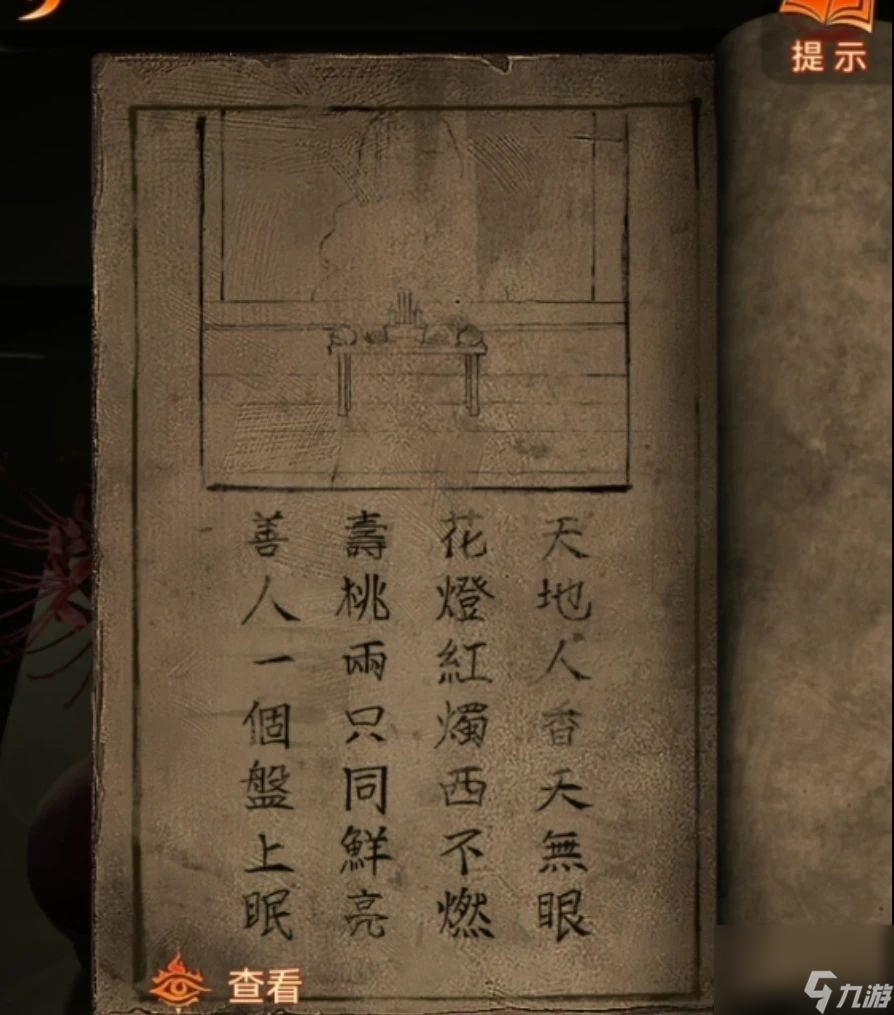 提示
天地人香天無眼
花燈紅燭西不燃
壽桃兩只同鮮亮
善人一個盤上眠
查看
九游